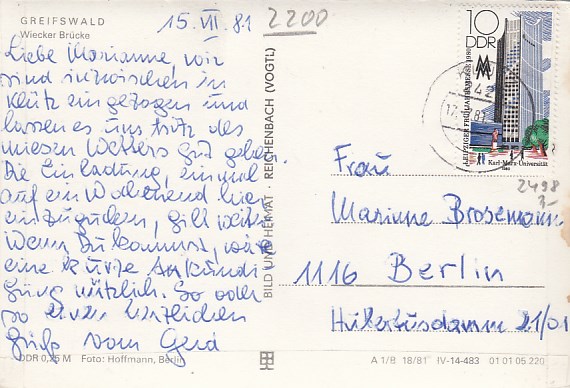 GREIFSWALD
Wiecker Brücke
15. VII. 81
2200
Liebe Marianne, wir
sind inzwischen in
Klütz eingezogen und
lassen es uns trotz des
miesen Wetters gut gehen.
Die Einladung, einmal
auf ein Wochenend hier
einzugucken, gilt weiter.
Wenn Du kommst, wäre
eine kurze Ankündi-
gung nützlich. So oder
so einen herzlichen
Gruß vom Gerd
DDR 0,25 M Foto: Hoffmann, Berlin
BILD UND HEIMAT · REICHENBACH (VOGTL)
10
DDR
LEIPZIGER FRÜHJAHRSMESSE 1980
Karl-Marx-Universität
2498
Frau
Marianne Brosemann
1116 Berlin
21/01
A 1/B 18/81 IV-14-483 01 01 05 220